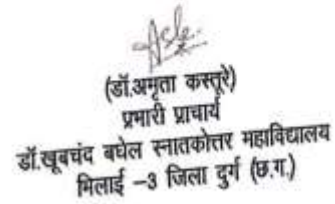 (डॉ.अमृता कस्तूरे)
प्रभारी प्राचार्य
डॉ.खूबचंद बघेल स्नातकोत्तर महाविद्यालय
भिलाई –3 जिला दुर्ग (छ.ग.)